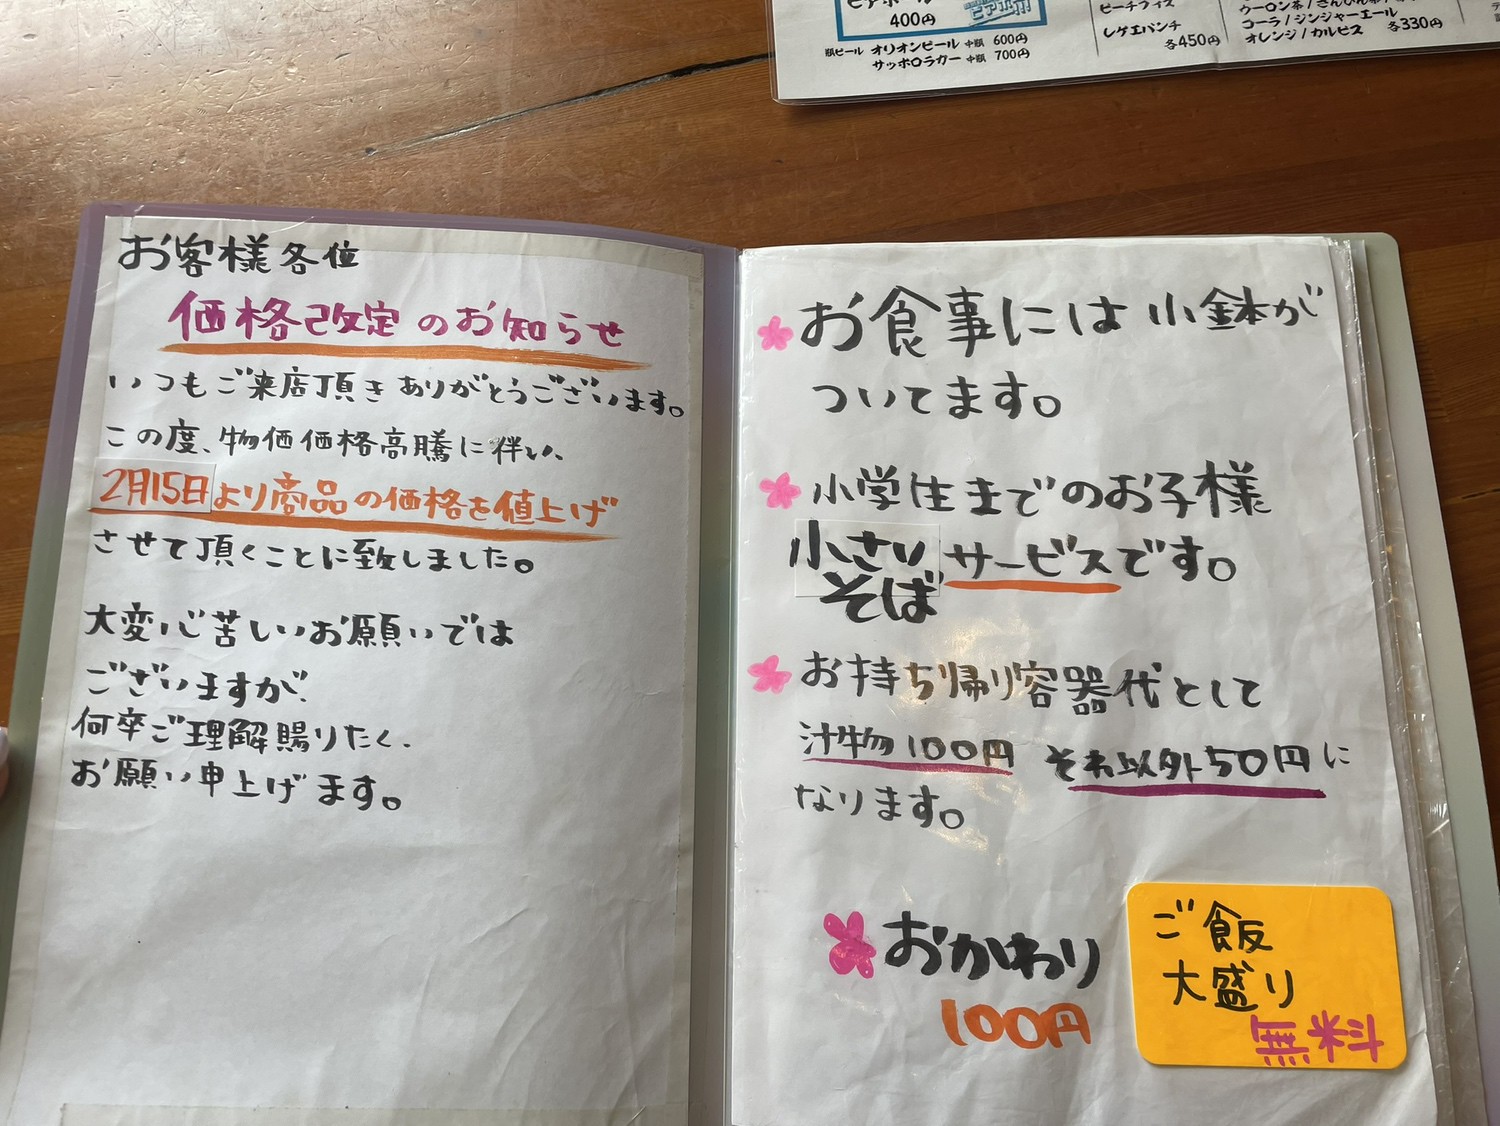 400円
瓶ビール オリオンビール 中瓶 600円
サッポロラガー 中瓶 700円
ピーチフィズ
レゲエパンチ
各450円
コーラ/ジンジャーエール
オレンジ/カルピス 各330円
お客様各位
価格改定のお知らせ
いつもご来店頂き ありがとうございます。
この度、物価価格高騰に伴い、
2月15日より商品の価格を値上げ
させて頂くことに致しました。
大変心苦しいお願いでは
ございますが、
何卒ご理解賜りたく、
お願い申上げます。
お食事には 小鉢が
ついてます。
小学生までのお子様
小さい
そば
サービスです。
お持ち帰り容器代として
汁物100円 それ以外50円に
なります。
おかわり
100円
ご飯
大盛り
無料